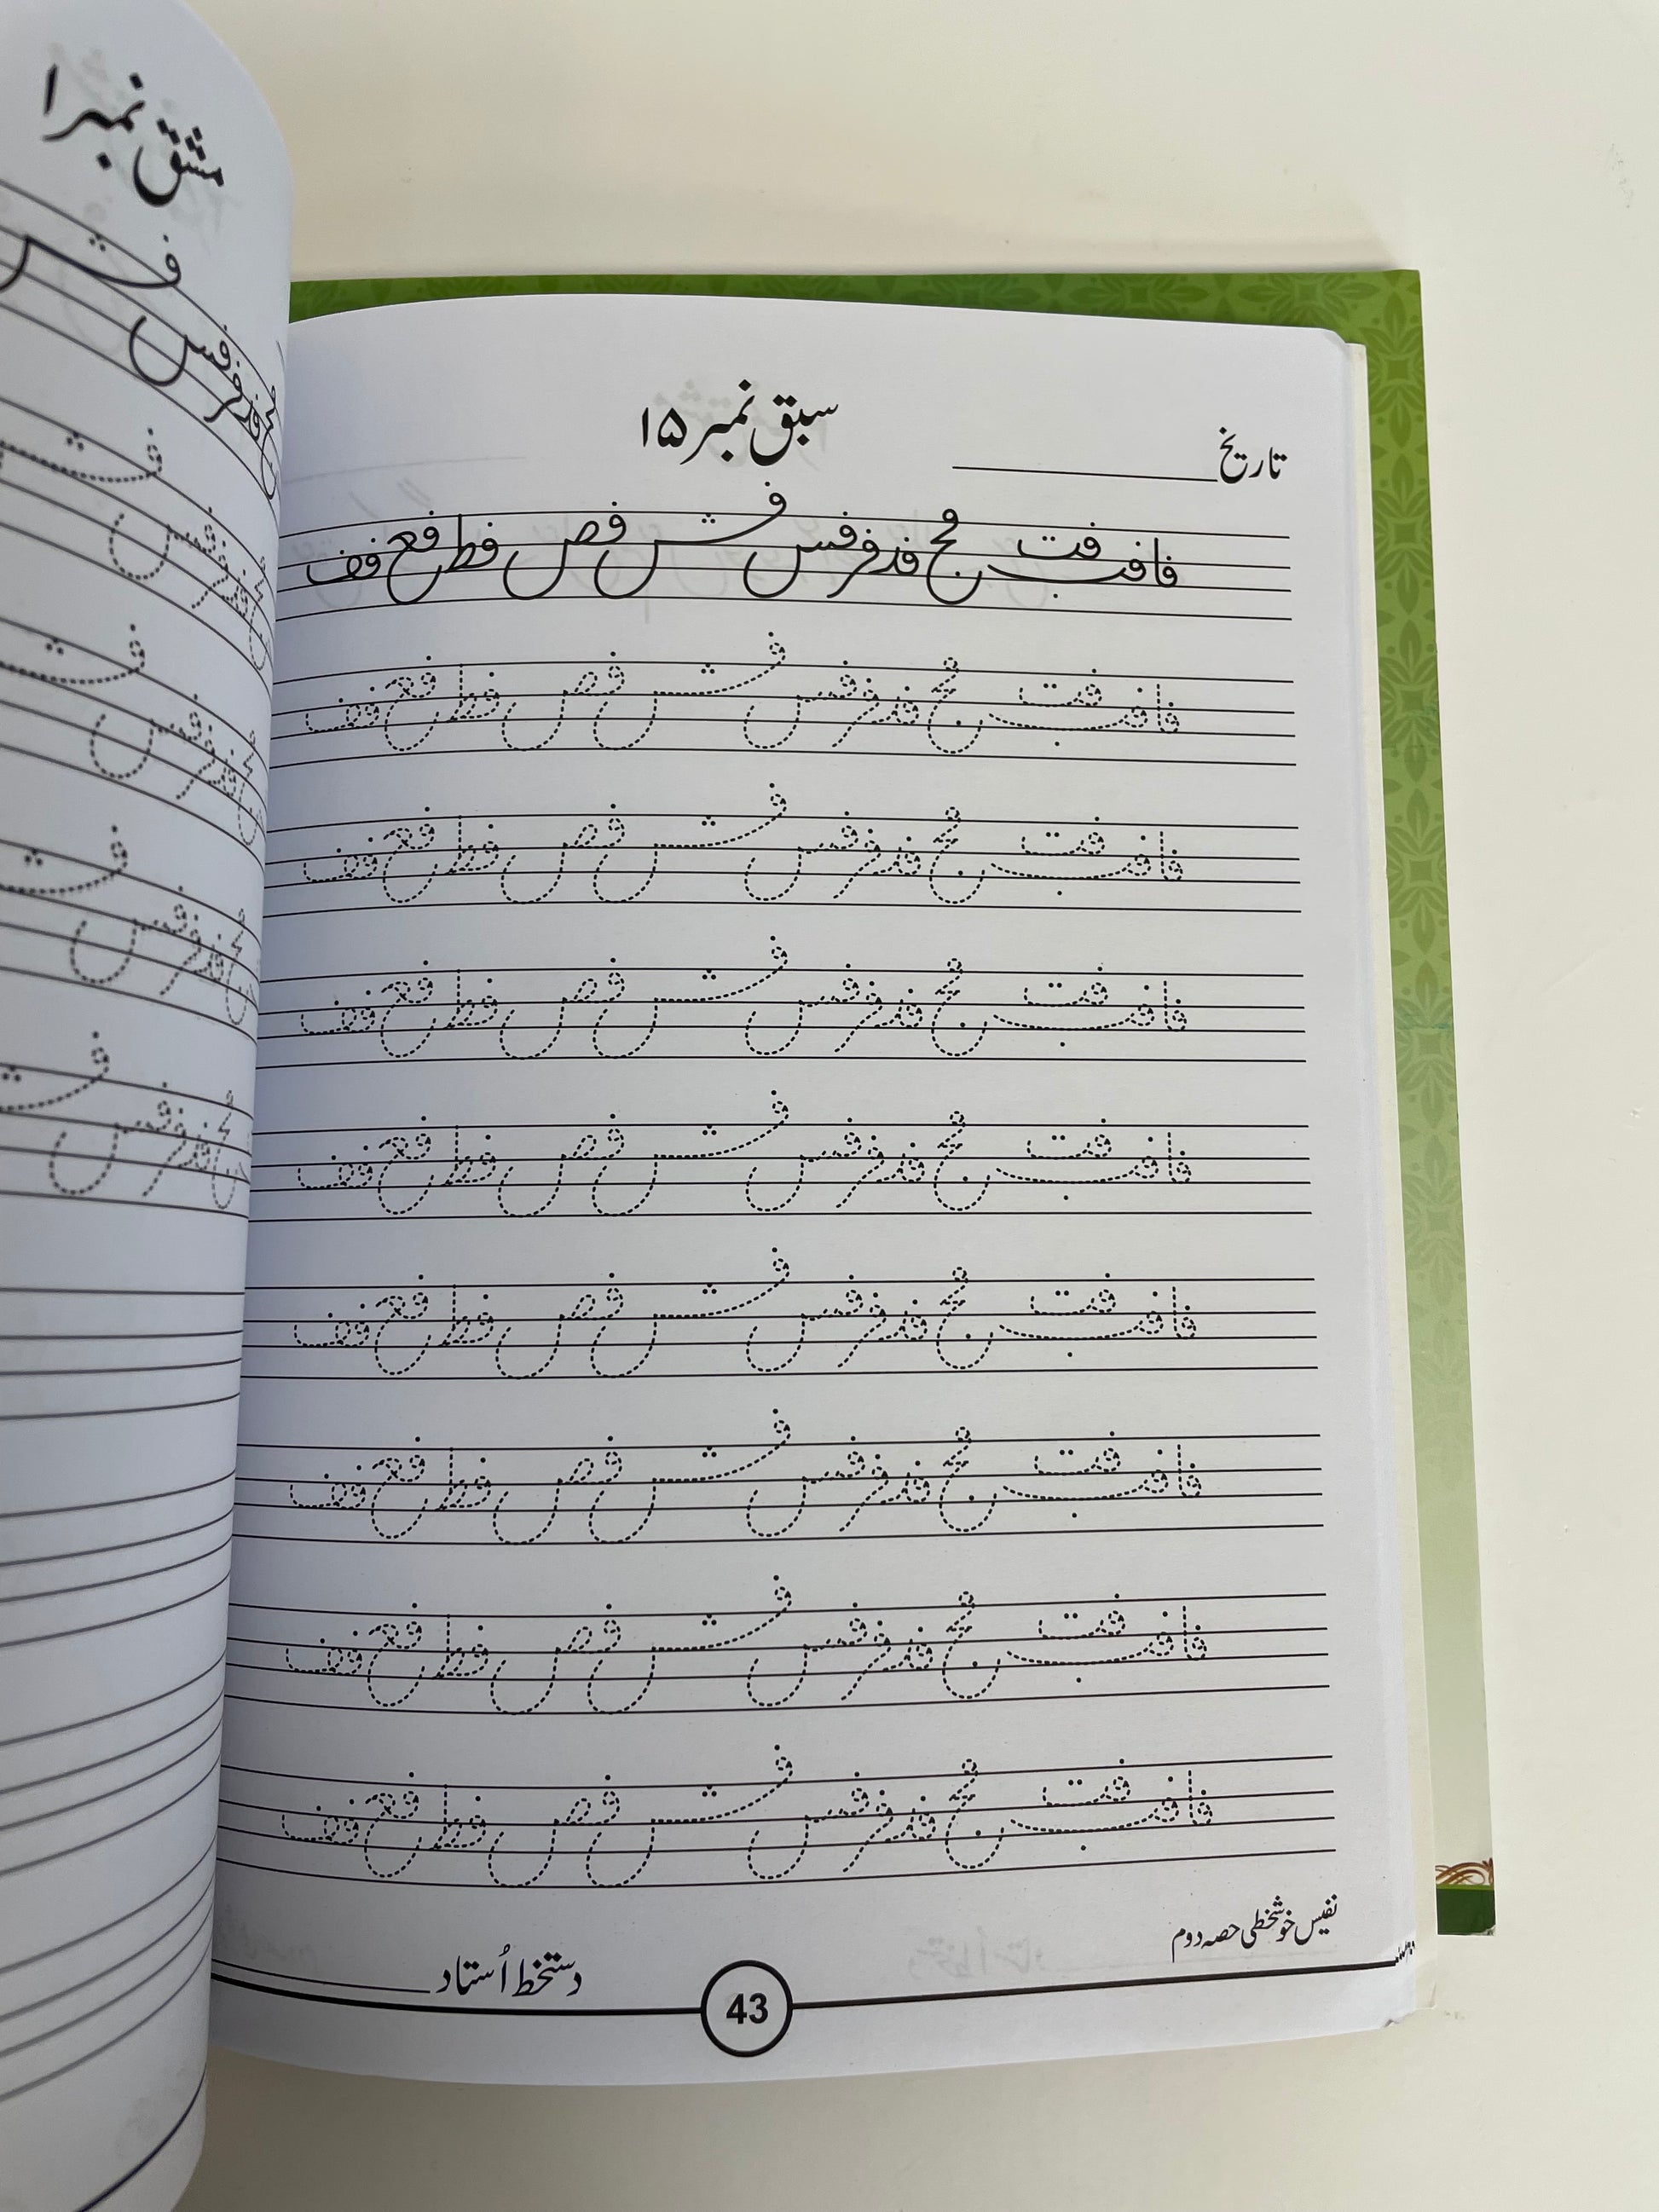 مشق نمبر ا
تاریخ
سبق نمبر ۱۵
فا فب فت فج فد فر فس فش فص فط فع فف
فا فب فت فج فد فر فس فش فص فط فع فف
فا فب فت فج فد فر فس فش فص فط فع فف
فا فب فت فج فد فر فس فش فص فط فع فف
فا فب فت فج فد فر فس فش فص فط فع فف
فا فب فت فج فد فر فس فش فص فط فع فف
فا فب فت فج فد فر فس فش فص فط فع فف
فا فب فت فج فد فر فس فش فص فط فع فف
فا فب فت فج فد فر فس فش فص فط فع فف
نفیس خوشخطی حصہ دوم
دستخط اُستاد
43